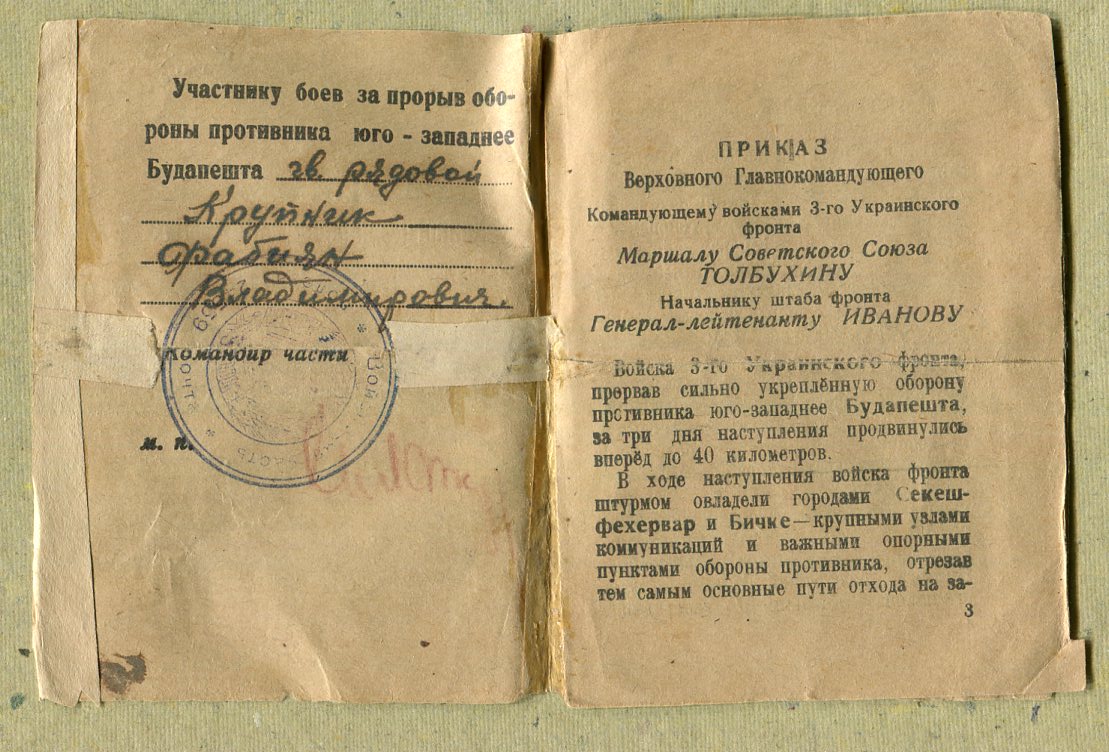 Участнику боев за прорыв обо-
роны противника юго - западнее
Будапешта гв. рядовой
Крупник
Фабиян
Владимирович.
Командир части
м. п.
ПРИКАЗ
Верховного Главнокомандующего
Командующему войсками 3-го Украинского
фронта
Маршалу Советского Союза
ТОЛБУХИНУ
Начальнику штаба фронта
Генерал-лейтенанту ИВАНОВУ
Войска 3-го Украинского фронта,
прервав сильно укреплённую оборону
противника юго-западнее Будапешта,
за три дня наступления продвинулись
вперёд до 40 километров.
В ходе наступления войска фронта
штурмом овладели городами Секеш-
фехервар и Бичке—крупными узлами
коммуникаций и важными опорными
пунктами обороны противника, отрезав
тем самым основные пути отхода на за-
3